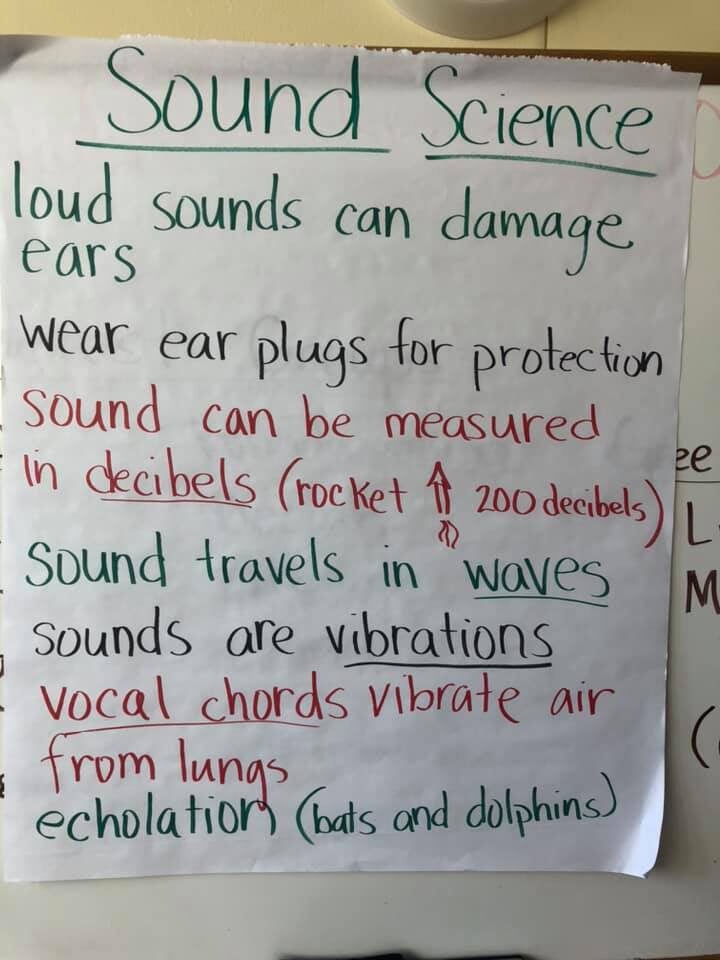 Sound Science
loud sounds can damage
ears
wear ear plugs for protection
sound can be measured
in decibels (rocket 200 decibels)
sound travels in waves
sounds are vibrations
vocal chords vibrate air
from lungs
echolation (bats and dolphins)
ee
L
M
(